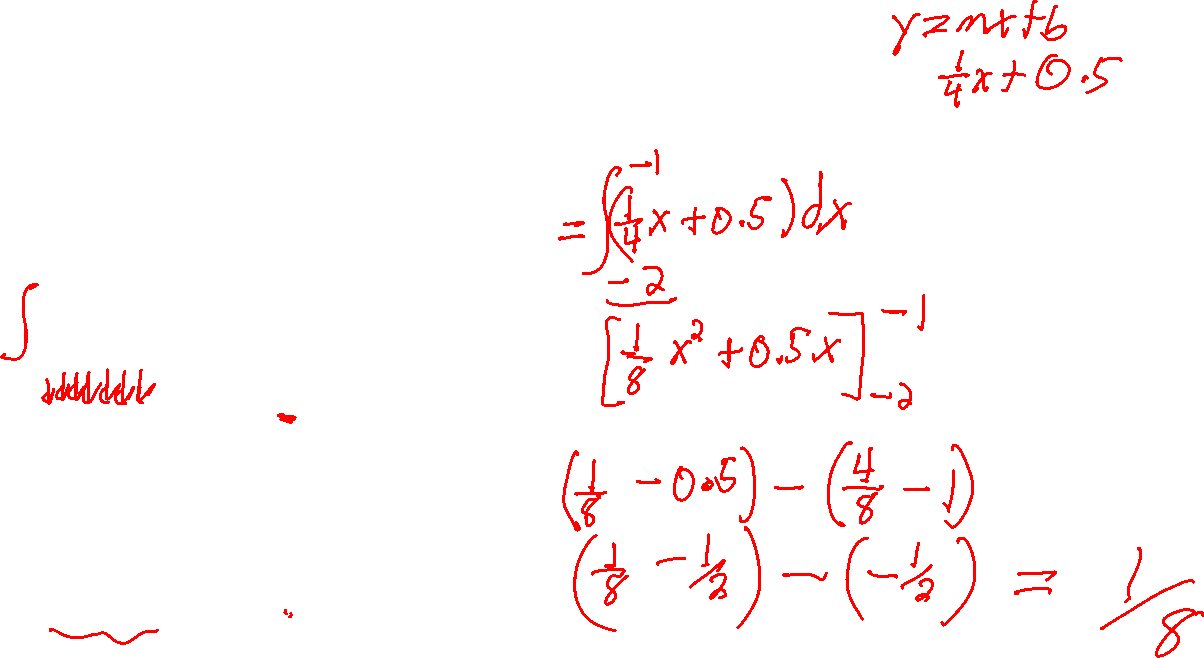 y=mx+b
1/4x+0.5
=∫_{-2}^{-1}(1/4x+0.5)dx
∫
[1/8x²+0.5x]_{-2}^{-1}
(1/8-0.5)-(4/8-1)
(1/8-1/2)-(-1/2)=1/8